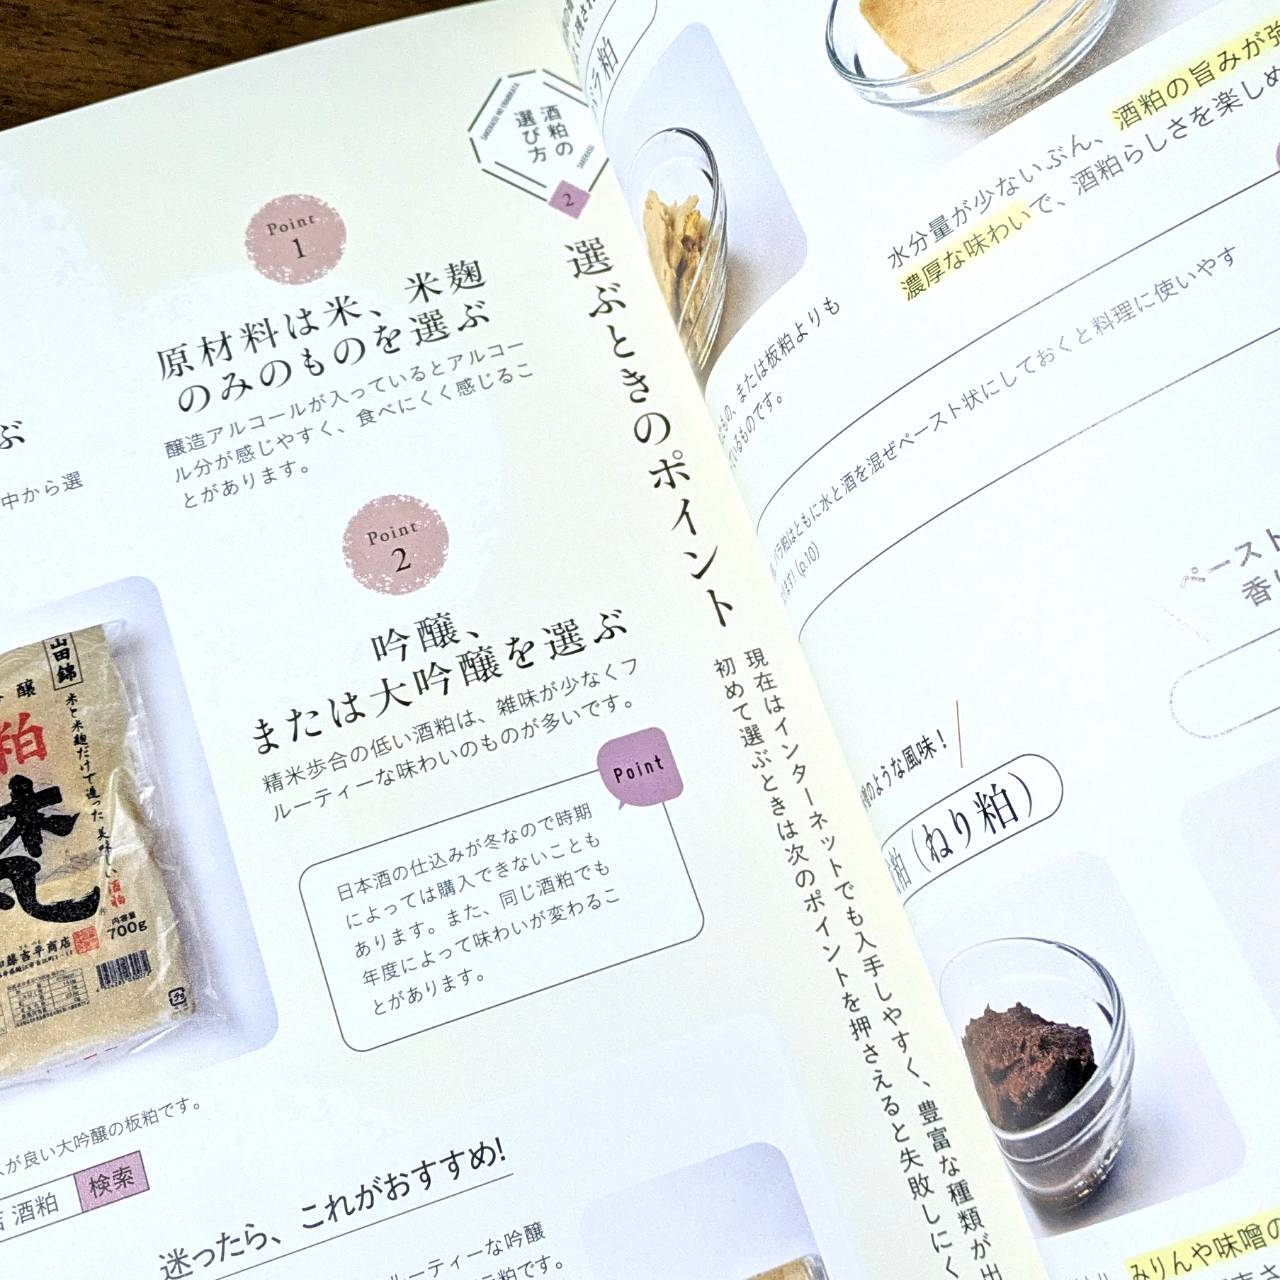 酒粕の
選び方
SAKEKASU NO ERABIKATA
SAKEKASU
2
選ぶときのポイント
現在はインターネットでも入手しやすく、豊富な種類が出
初めて選ぶときは次のポイントを押さえると失敗しにく
Point
1
原材料は米、米麹
のみのものを選ぶ
醸造アルコールが入っているとアルコー
ル分が感じやすく、食べにくく感じるこ
とがあります。
Point
2
吟醸、
または大吟醸を選ぶ
精米歩合の低い酒粕は、雑味が少なくフ
ルーティーな味わいのものが多いです。
Point
日本酒の仕込みが冬なので時期
によっては購入できないことも
あります。また、同じ酒粕でも
年度によって味わいが変わるこ
とがあります。
ぶ
中から選
山田錦
醸
粕
米と米麹だけで造った
美味しい酒粕
内容量
700g
藤吉平商店
が良い大吟醸の板粕です。
酒粕
検索
迷ったら、これがおすすめ!
ルーティーな吟醸
粕です。
バラ粕
水分量が少ないぶん、酒粕の旨みが強
濃厚な味わいで、酒粕らしさを楽しめ
もの、または板粕よりも
ているものです。
バラ粕はともに水と酒を混ぜペースト状にしておくと料理に使いやす
ます!(p.10)
ペースト
香り
のような風味!
粕(ねり粕)
みりんや味噌の